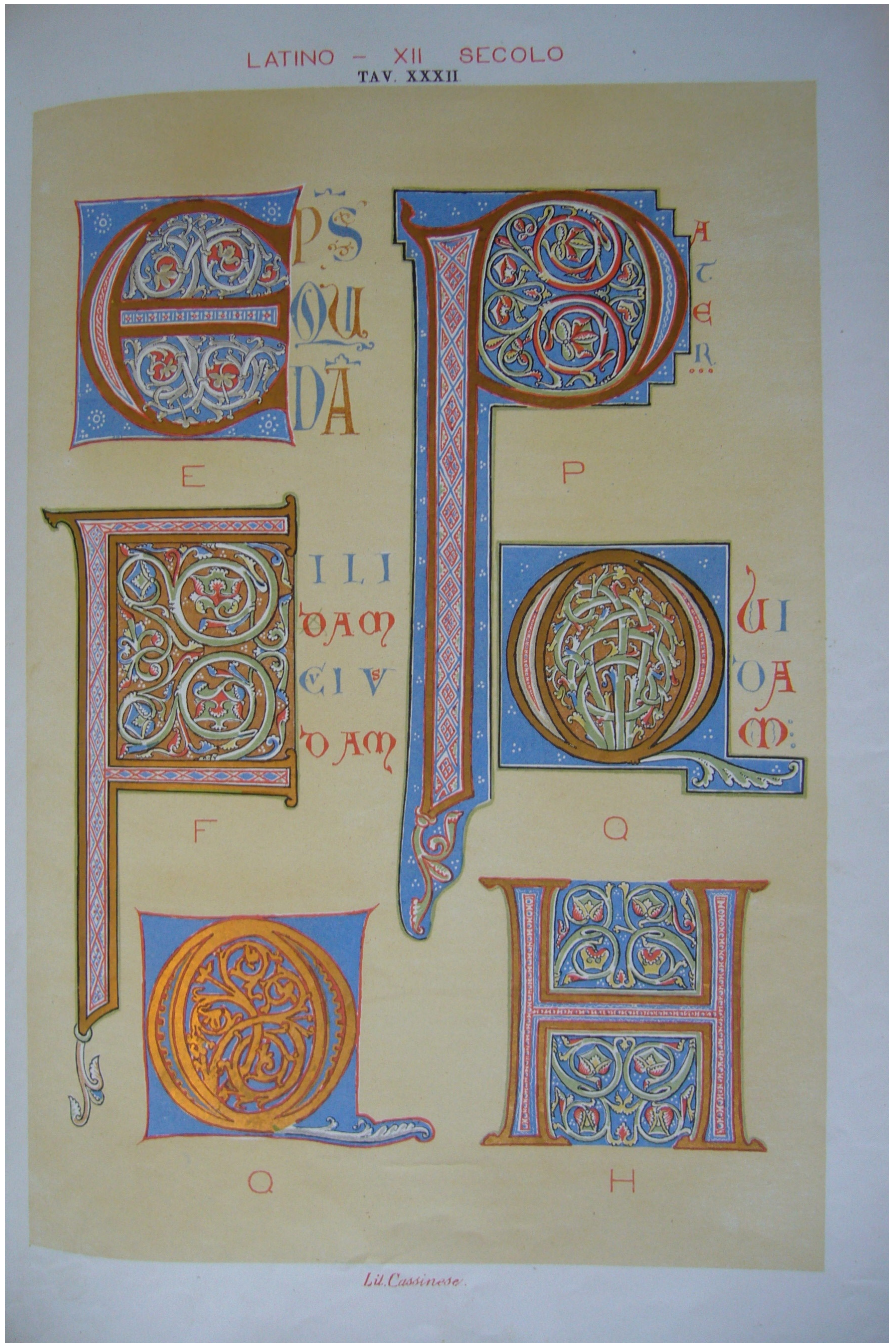 LATINO – XII SECOLO
TAV. XXXII
E
PS
QU
DA
E
P
A
T
E
R
P
F
ILI
DAM
CUIVS
DAM
F
Q
UI
DA
M:
Q
Q
Q
H
H
Lit. Cassinese.